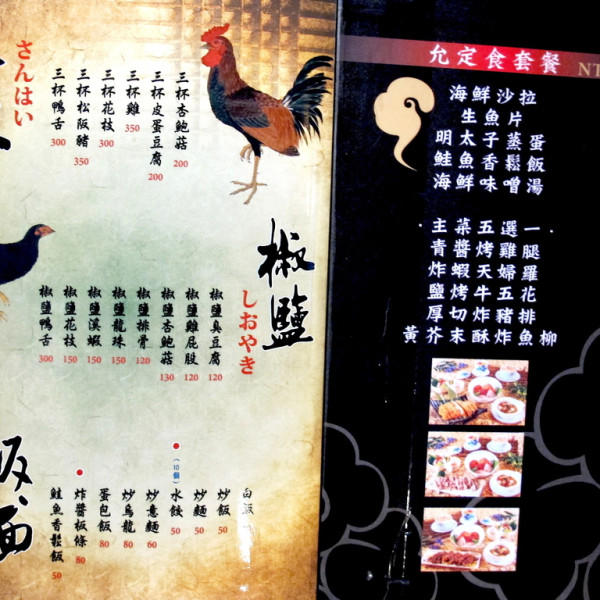 さんはい
三杯杏鮑菇 200
三杯皮蛋豆腐 200
三杯雞 350
三杯花枝 300
三杯松阪豬 350
三杯鴨舌 300
椒鹽
しおやき
椒鹽臭豆腐 120
椒鹽雞屁股 120
椒鹽杏鮑菇 130
椒鹽排骨 120
椒鹽龍珠 150
椒鹽溪蝦 150
椒鹽花枝 150
椒鹽鴨舌 300
飯麵
白飯
炒飯 50
炒麵 50
水餃 50
(10個)
炒意麵 60
炒烏龍 80
蛋包飯 80
炸醬板條 80
鮭魚香鬆飯 50
允定食套餐 NT
海鮮沙拉
生魚片
明太子蒸蛋
鮭魚香鬆飯
海鮮味噌湯
·主菜五選一·
青醬烤雞腿
炸蝦天婦羅
鹽烤牛五花
厚切炸豬排
黃芥末酥炸魚柳